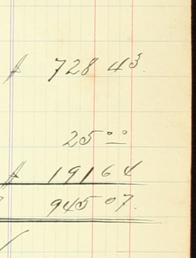 $ 728 43.
25 00
$ 191 64
945 07.